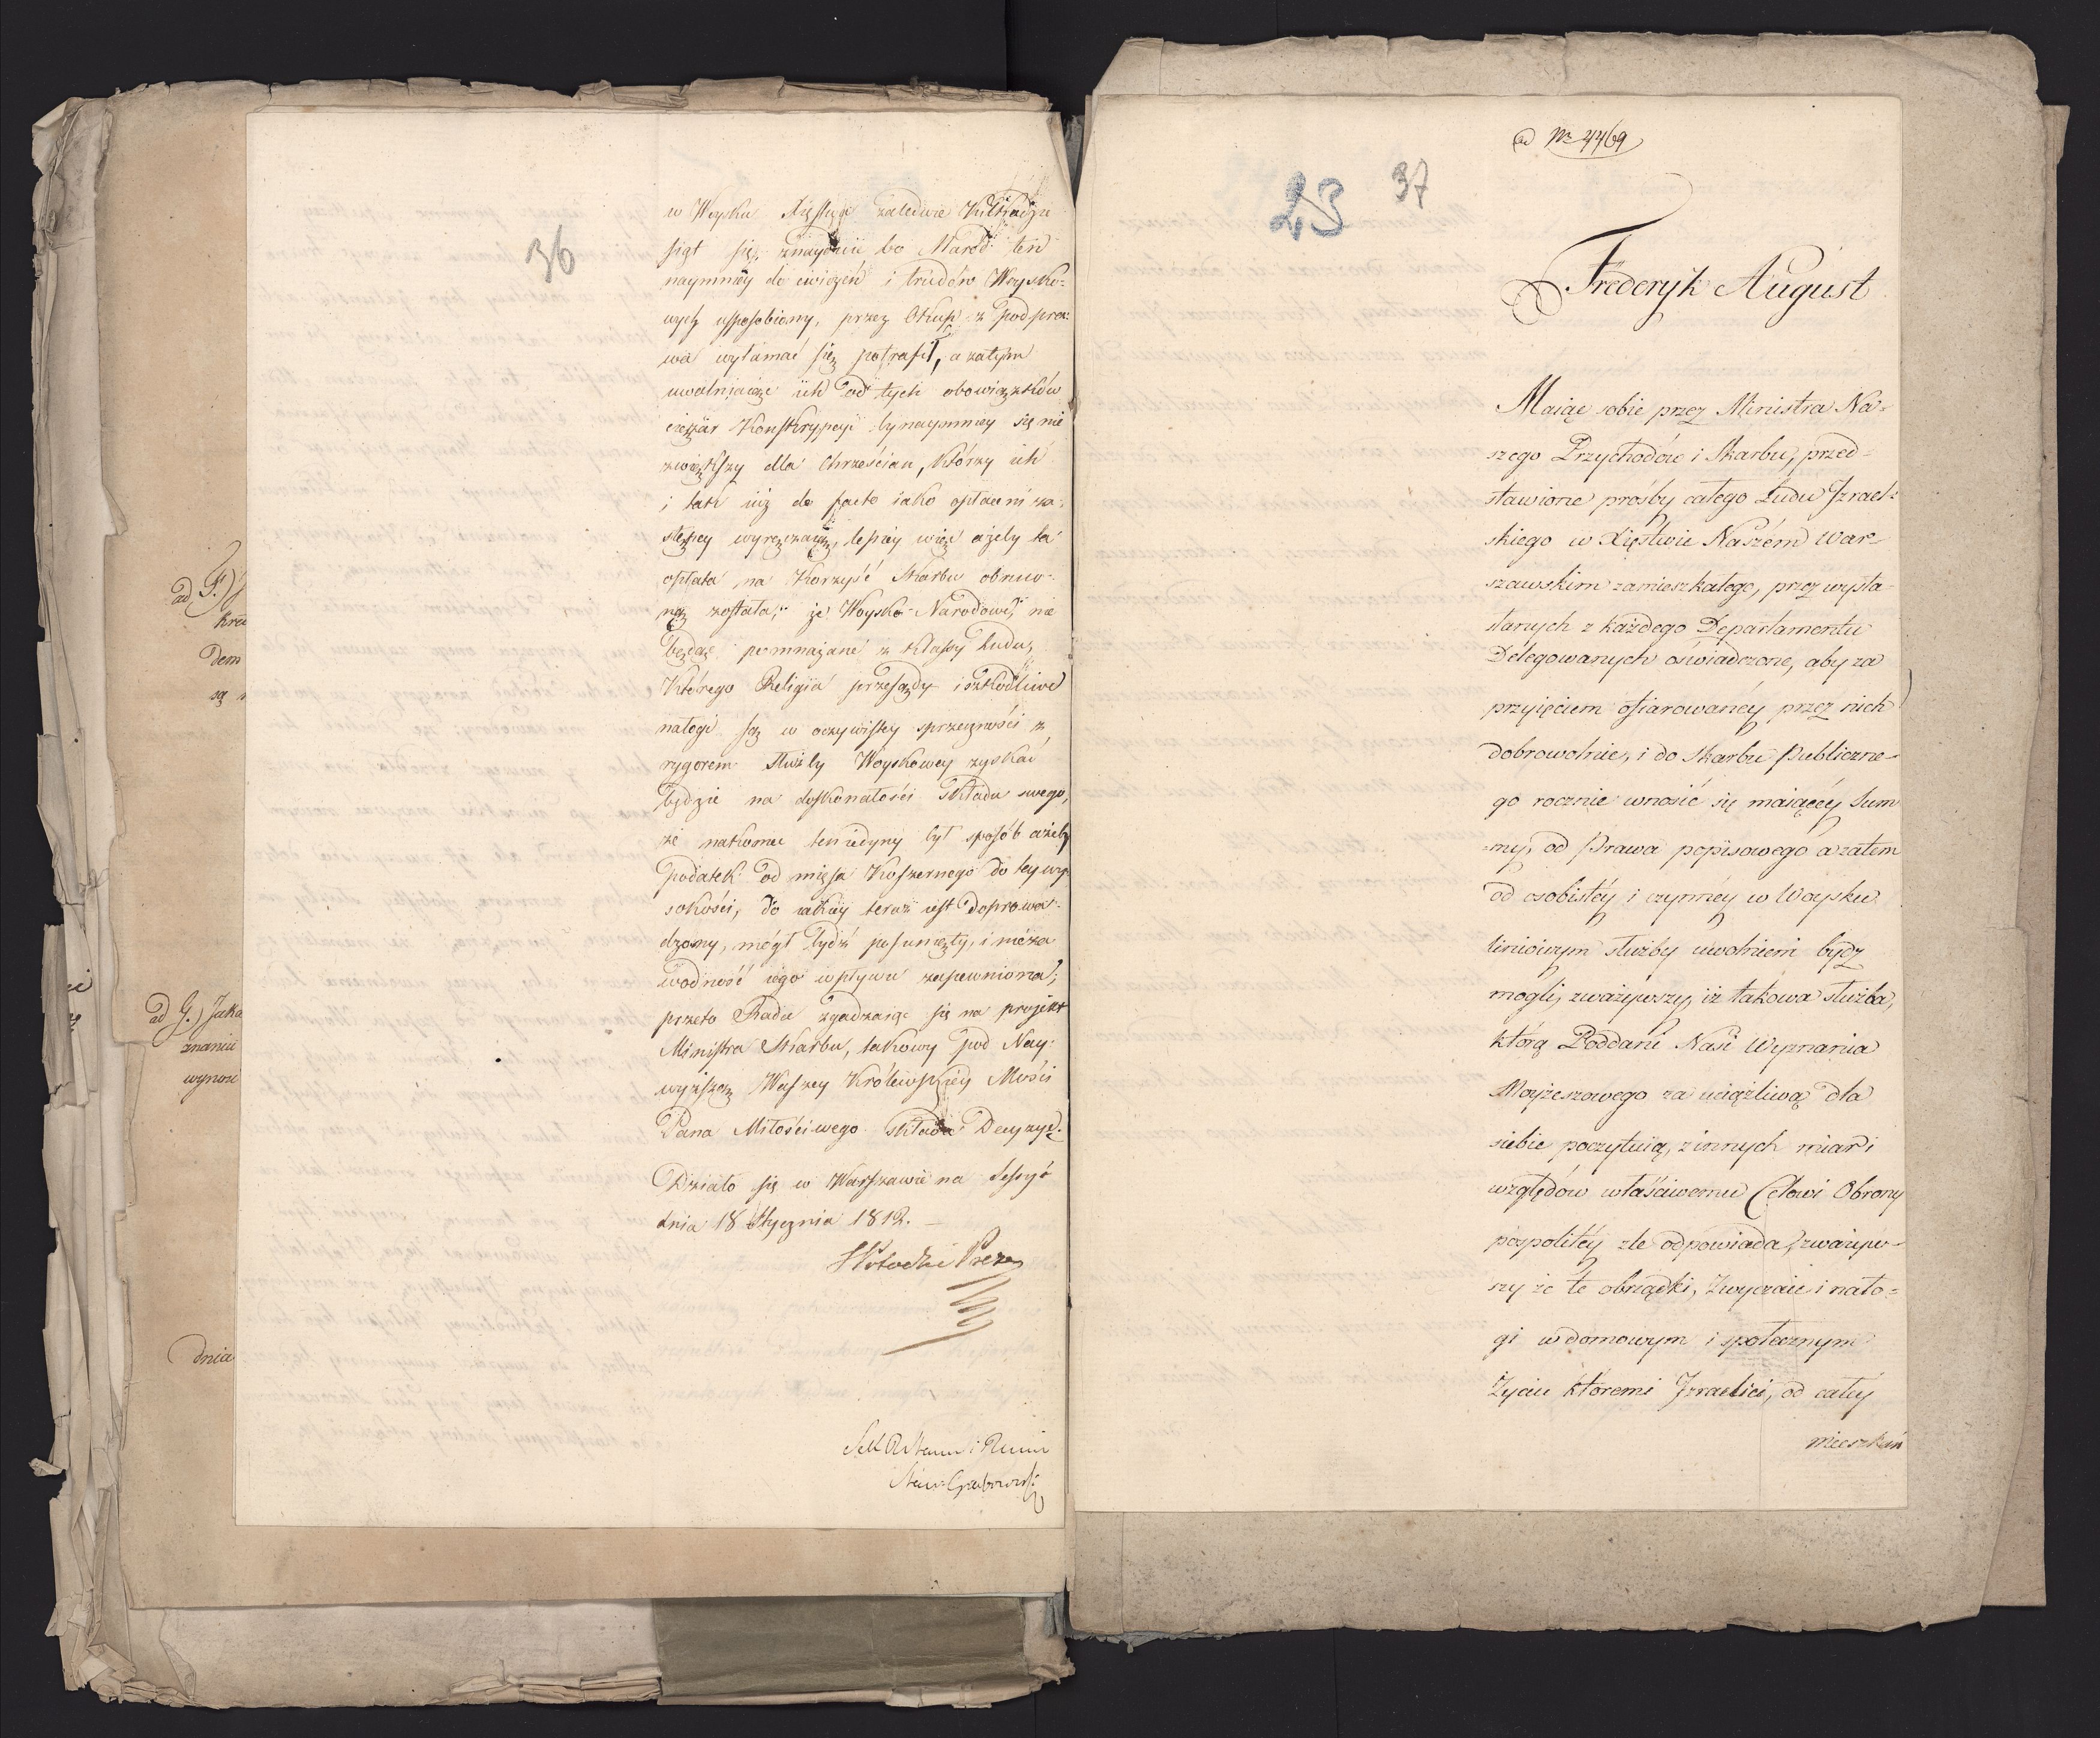 36
w Woysku Xięstwa zaledwie Kilkadzie
siąt się znayduie bo Naród ten
naymniéy do ćwiczeń i trudów Woysko-
wych usposobiony, przez Okup z pod pra-
wa wyłamać się potrafił, a zatym
uwalniaiąc ich od tych obowiązków
ciężar Konskrypcyi bynaymniey się nie
zwiększy dla Chrześcian, Którzy ich
i tak iuż de facto iako opłaceni za-
stępcy wyręczaią, lepiéy więc ażeby ta
opłata na Korzyść Skarbu obróco-
ną została; że Woysko Narodowe, nie
będąc pomnażane z Klassy Ludu,
Którego Religia przesądy i szkodliwe
nałogi są w oczywistey sprzeczności z
rygorem służby Woyskowey zyskać
będzie na doskonałości składu swego,
że nakoniec ten iedyny był sposób ażeby
podatek od mięsa Koszernego do tey wy-
sokości, do iakiéy teraz iest doprowa-
dzony, mógł bydź posunięty, i nieza-
wodność iego wpływu zapewniona;
przeto Rada zgadzaiąc się na projekt
Ministra Skarbu, takowy pod Nay-
wyższą Waszey Królewskiéy Mości
Pana Miłościwego składa Decyzyę.
Działo się w Warszawie na Sessyi
dnia 18 Stycznia 1812.
Potocki Prezes
Grabowski
ad F.)
kre
dem
są
ad G.) Jaka
znaniu
wynosi
dnia
ad Nr 4469
23 37
Frederyk August
Maiąc sobie przez Ministra Na-
szego Przychodów i Skarbu, przed-
stawione prośby całego Ludu Izrael-
skiego w Xięstwie Naszém War-
szawskim zamieszkałego, przez wysła-
stanych z każdego Departamentu
Délegowanych oświadczone, aby za
przyięciem ofiarowanéy przez nich
dobrowolnie, i do Skarbu Publiczne-
go rocznie wnosić się maiącéy Sum
-my, od Prawa popisowego a zatem
od osobistéy i czynnéy w Woysku
liniowym służby uwolnieni bydz
mogli, zważywszy, iż takowa służba,
którą Poddani Nasi Wyznania
Moyżeszowego za uciążliwą dla
siebie poczytuią, z innych miar i
względów właściwemu Celowi Obrony
pospolitéy zle odpowiada, zważyw-
szy że te obrządki, Zwyczaie i nało-
gi w domowym i społecznym
Życiu któremi Izraelici, od całéy
mieszkań